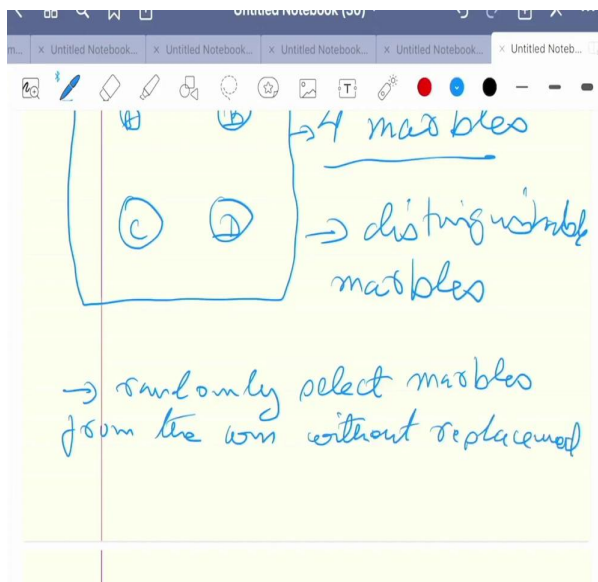 Untitled Notebook (30)
m... × Untitled Notebook... × Untitled Notebook... × Untitled Notebook... × Untitled Notebook... × Untitled Noteb...
T
A B → 4 marbles
C D → distinguishable
marbles
→ randomly select marbles
from the urn without replacement